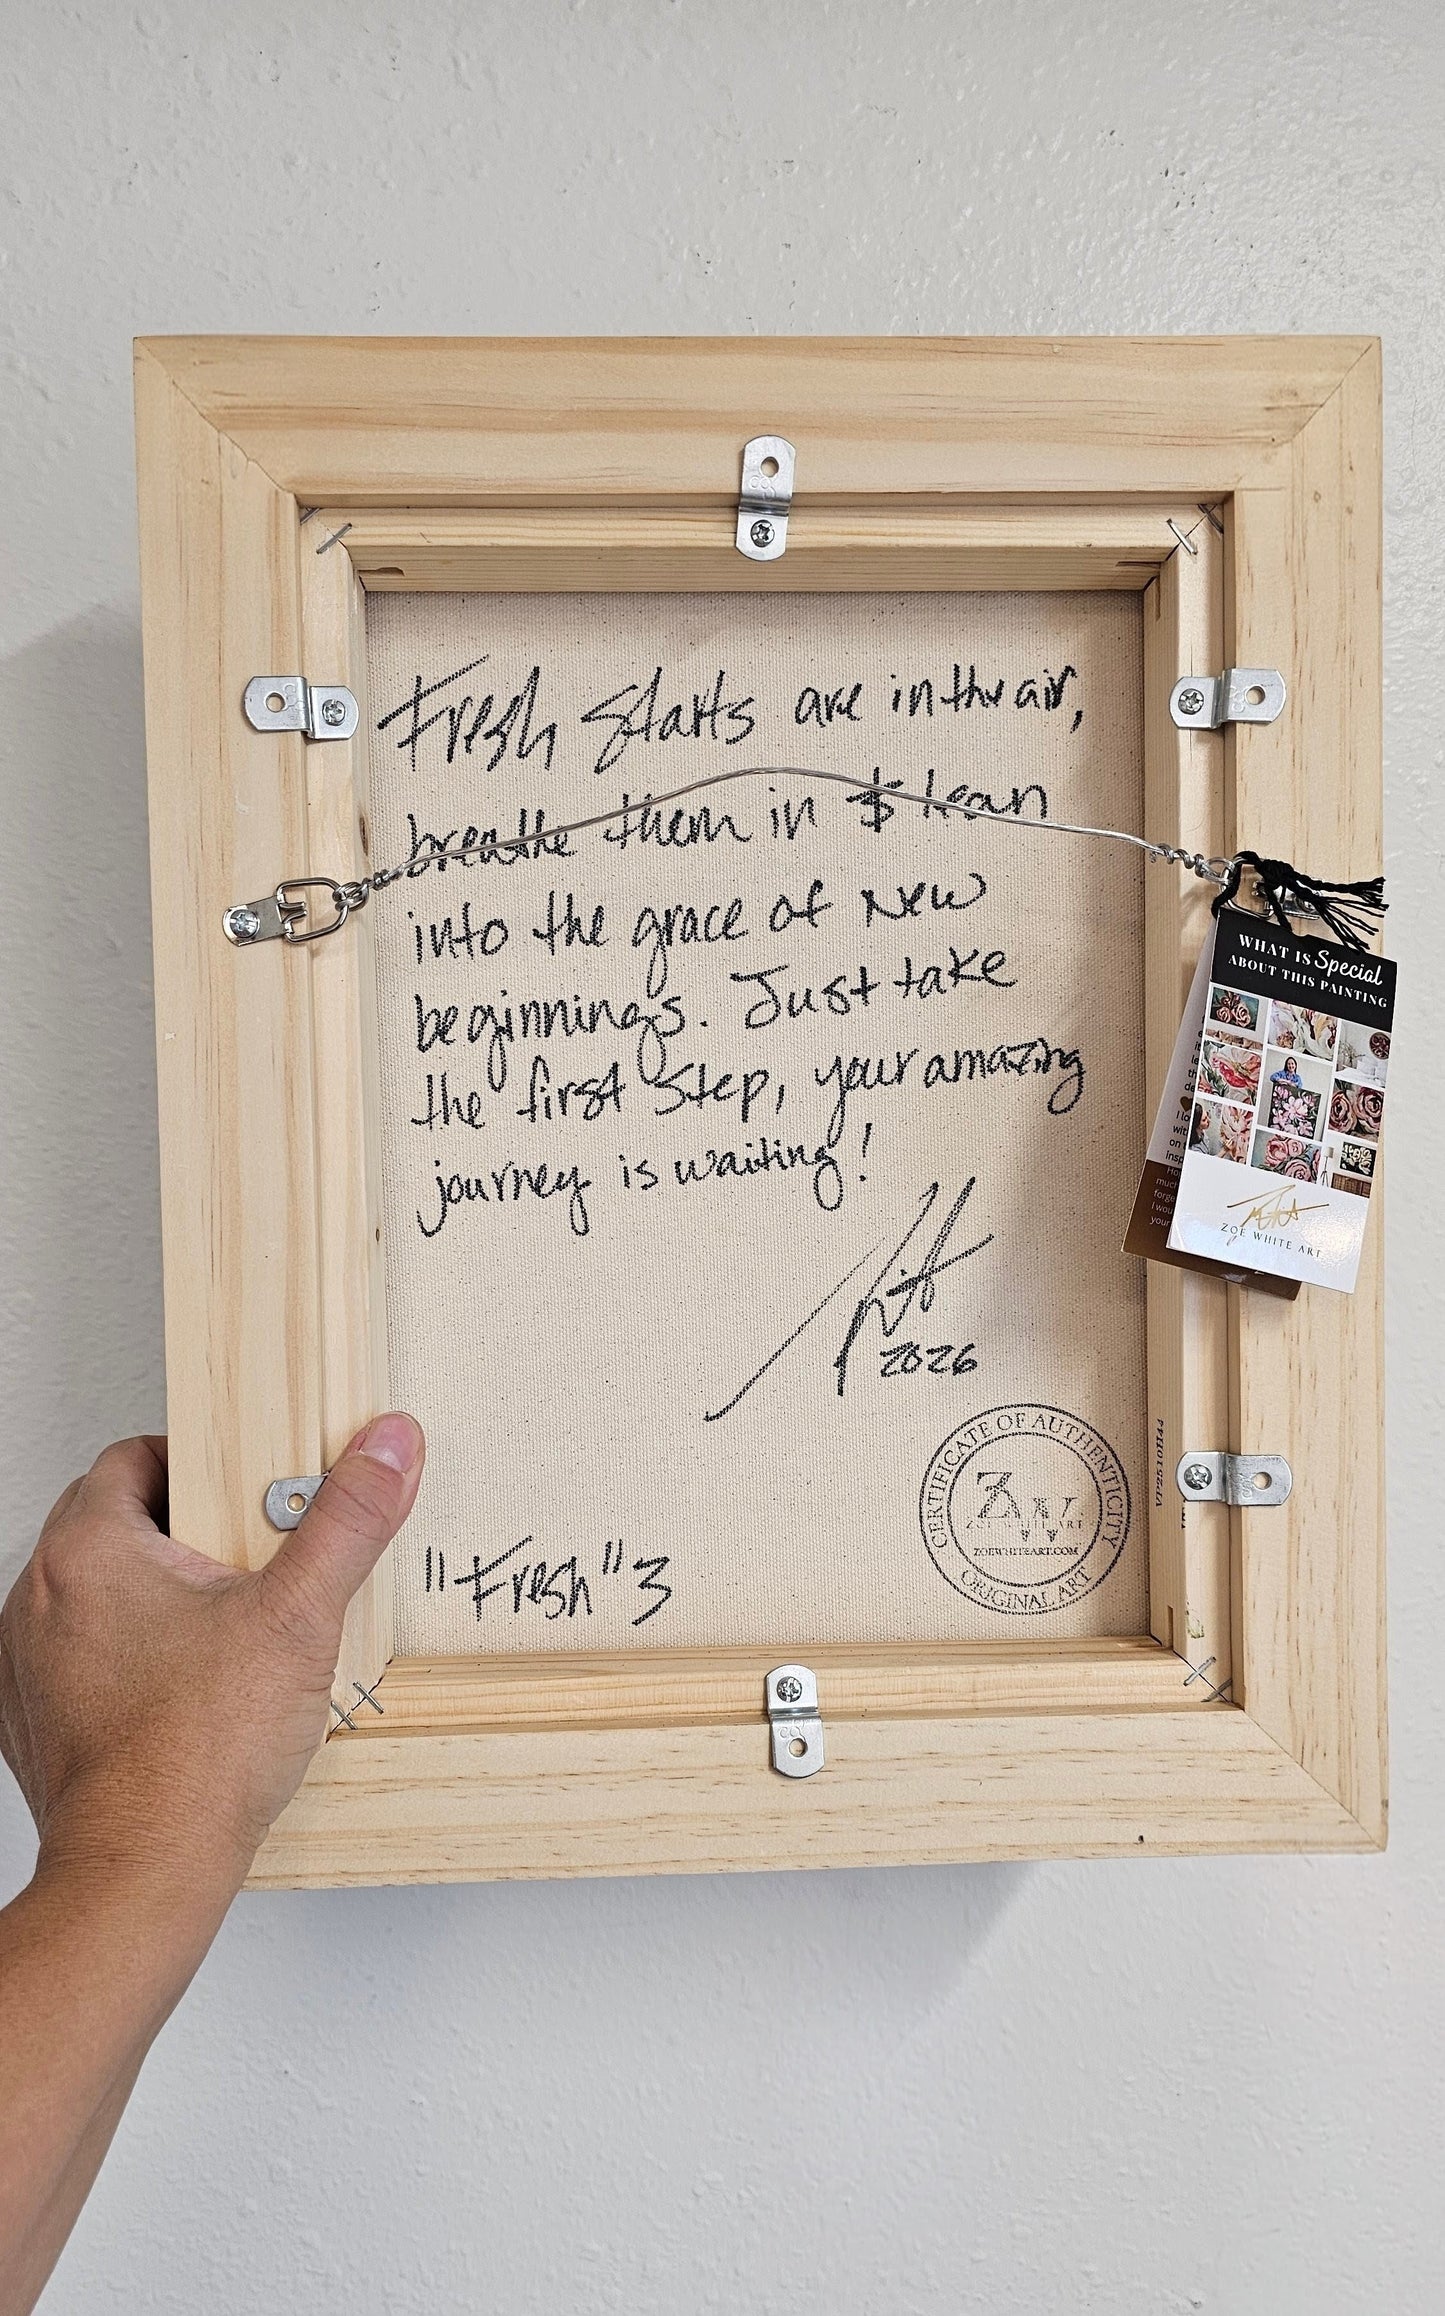 Fresh Starts are in the air,
breathe them in & lean
into the grace of New
beginnings. Just take
the first step, your amazing
journey is waiting!
2026
"Fresh" 3
CERTIFICATE OF AUTHENTICITY
ZW.
ZOE WHITE ART
ZOEWHITEART.COM
ORIGINAL ART
VP2510H44
WHAT IS Special
ABOUT THIS PAINTING
ZOE WHITE ART